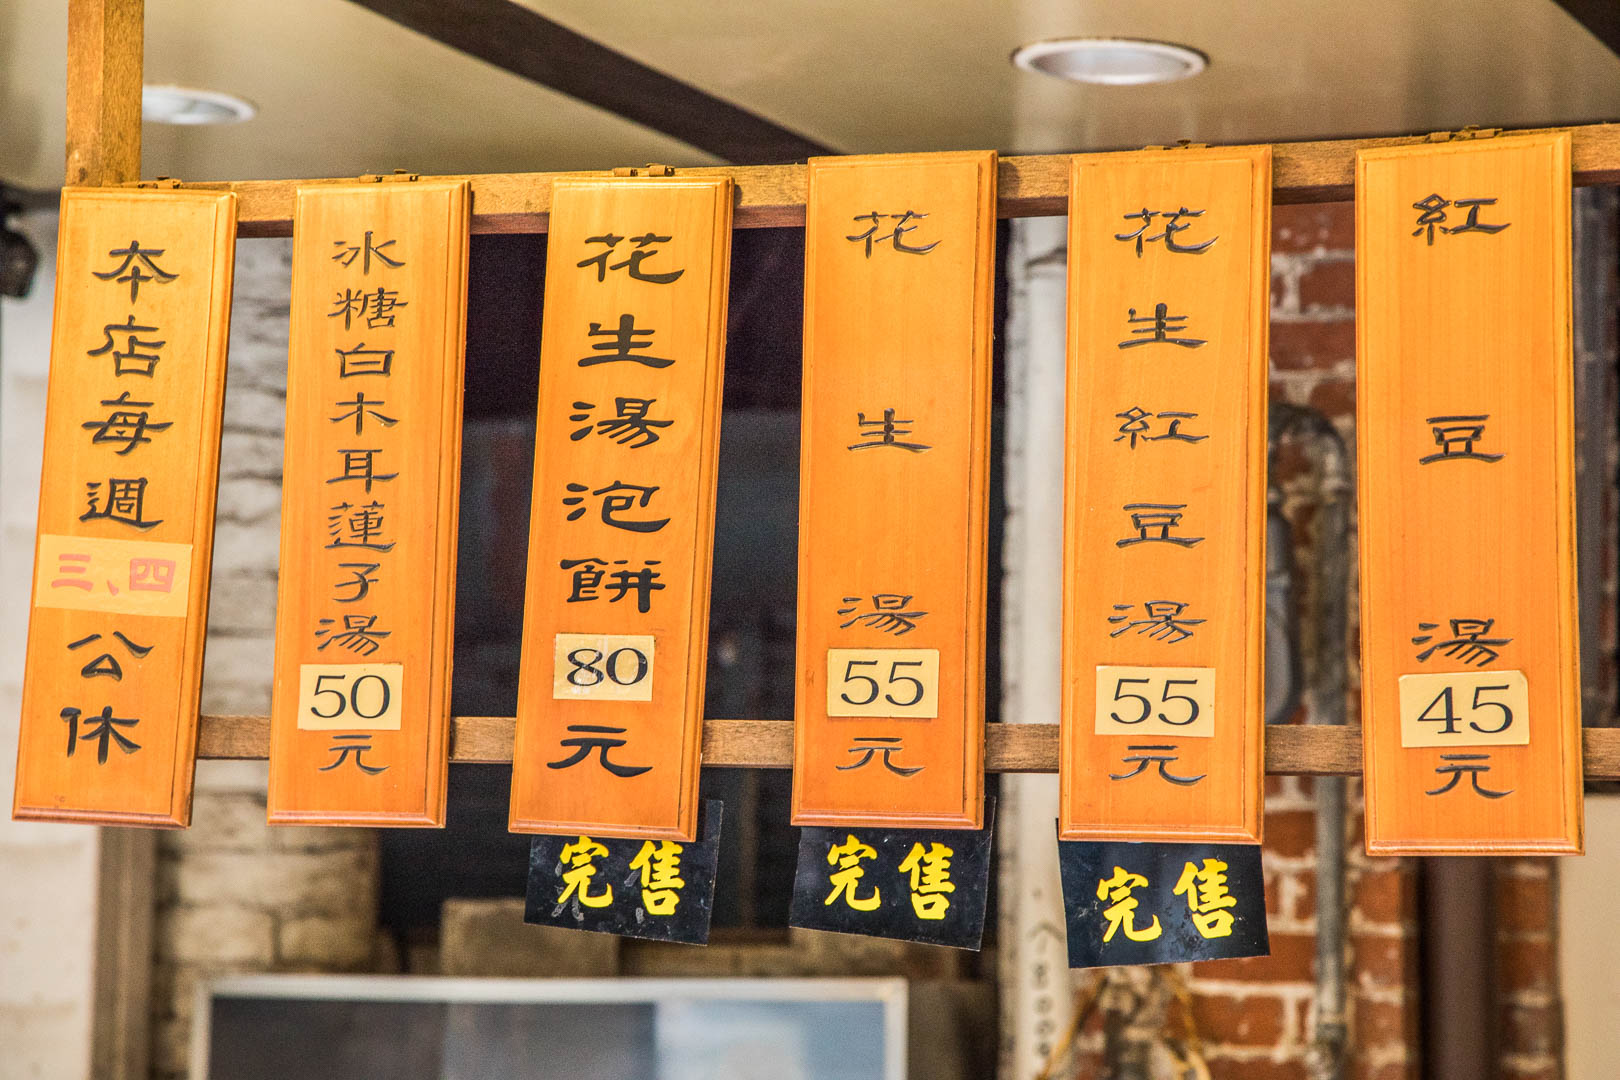 紅豆湯45元
花生紅豆湯55元
完售
花生湯55元
完售
花生湯泡餅80元
完售
冰糖白木耳蓮子湯50元
本店每週三、四公休